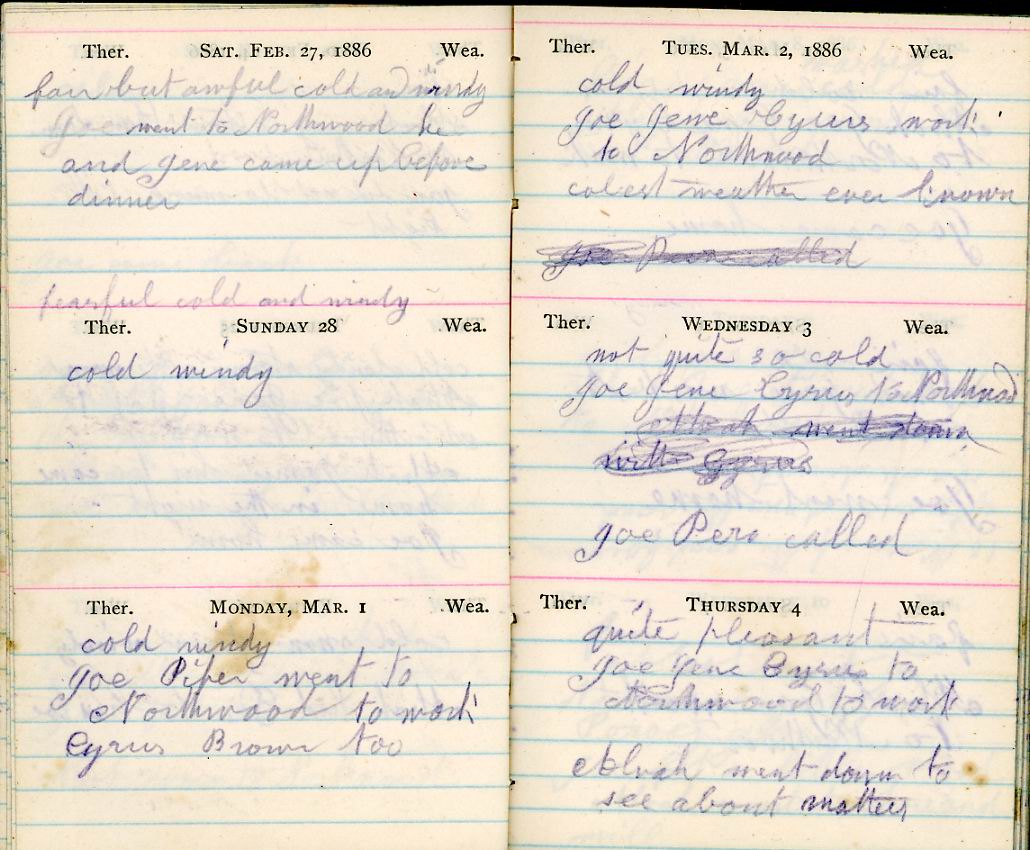 Ther. SAT. FEB. 27, 1886 Wea.
fair but awful cold and windy
Joe went to Northwood he
and Gene came up before
dinner
fearful cold and windy
Ther. SUNDAY 28 Wea.
cold windy
Ther. MONDAY, MAR. 1 Wea.
cold windy
Joe Piper went to
Northwood to work
Cyrus Brown too
Ther. TUES. MAR. 2, 1886 Wea.
cold windy
Joe Gene Cyrus work
to Northwood
colest weather ever known
Joe Pero called
Ther. WEDNESDAY 3 Wea.
not quite so cold
Joe Gene Cyrus to Northwood
went down
with Cyrus
Joe Pero called
Ther. THURSDAY 4 Wea.
quite pleasant
Joe Gene Cyrus to
Northwood to work
went down to
see about matters